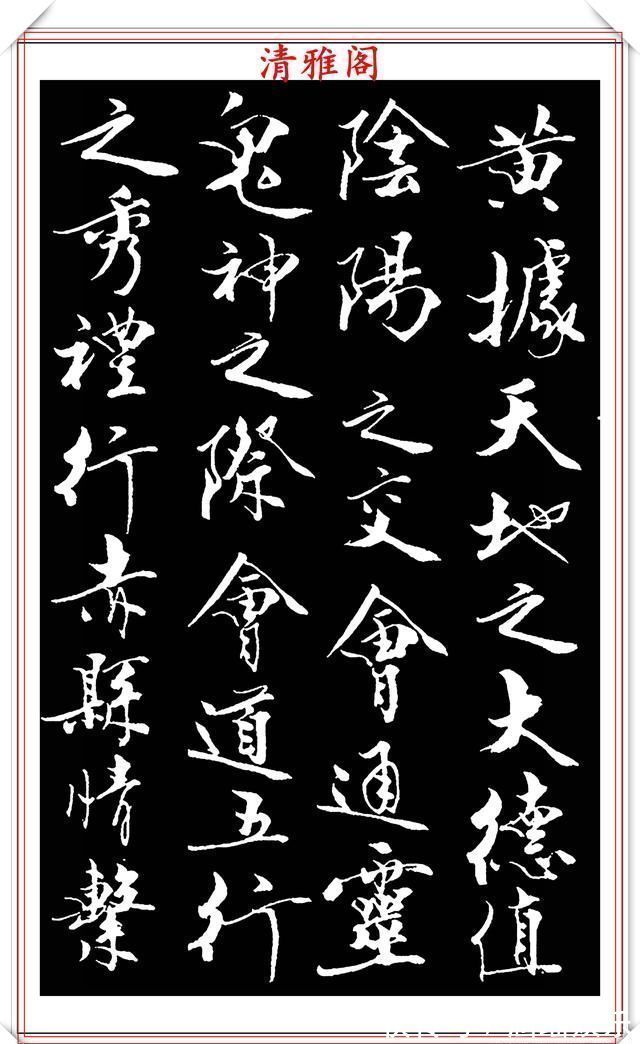 清雅阁
黄據天地之大德值
陰陽之交會通靈
鬼神之際會道五行
之秀禮行赤縣情繫